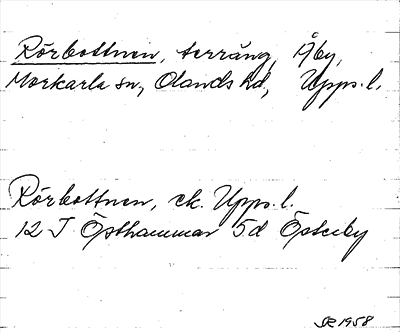 Rörbottnen, terräng, Åby,
Morkarla sn, Olands hd, Upps. l.
Rörbottnen, ek. Upps. l.
12 I Östhammar 5d Österby
SR 1958